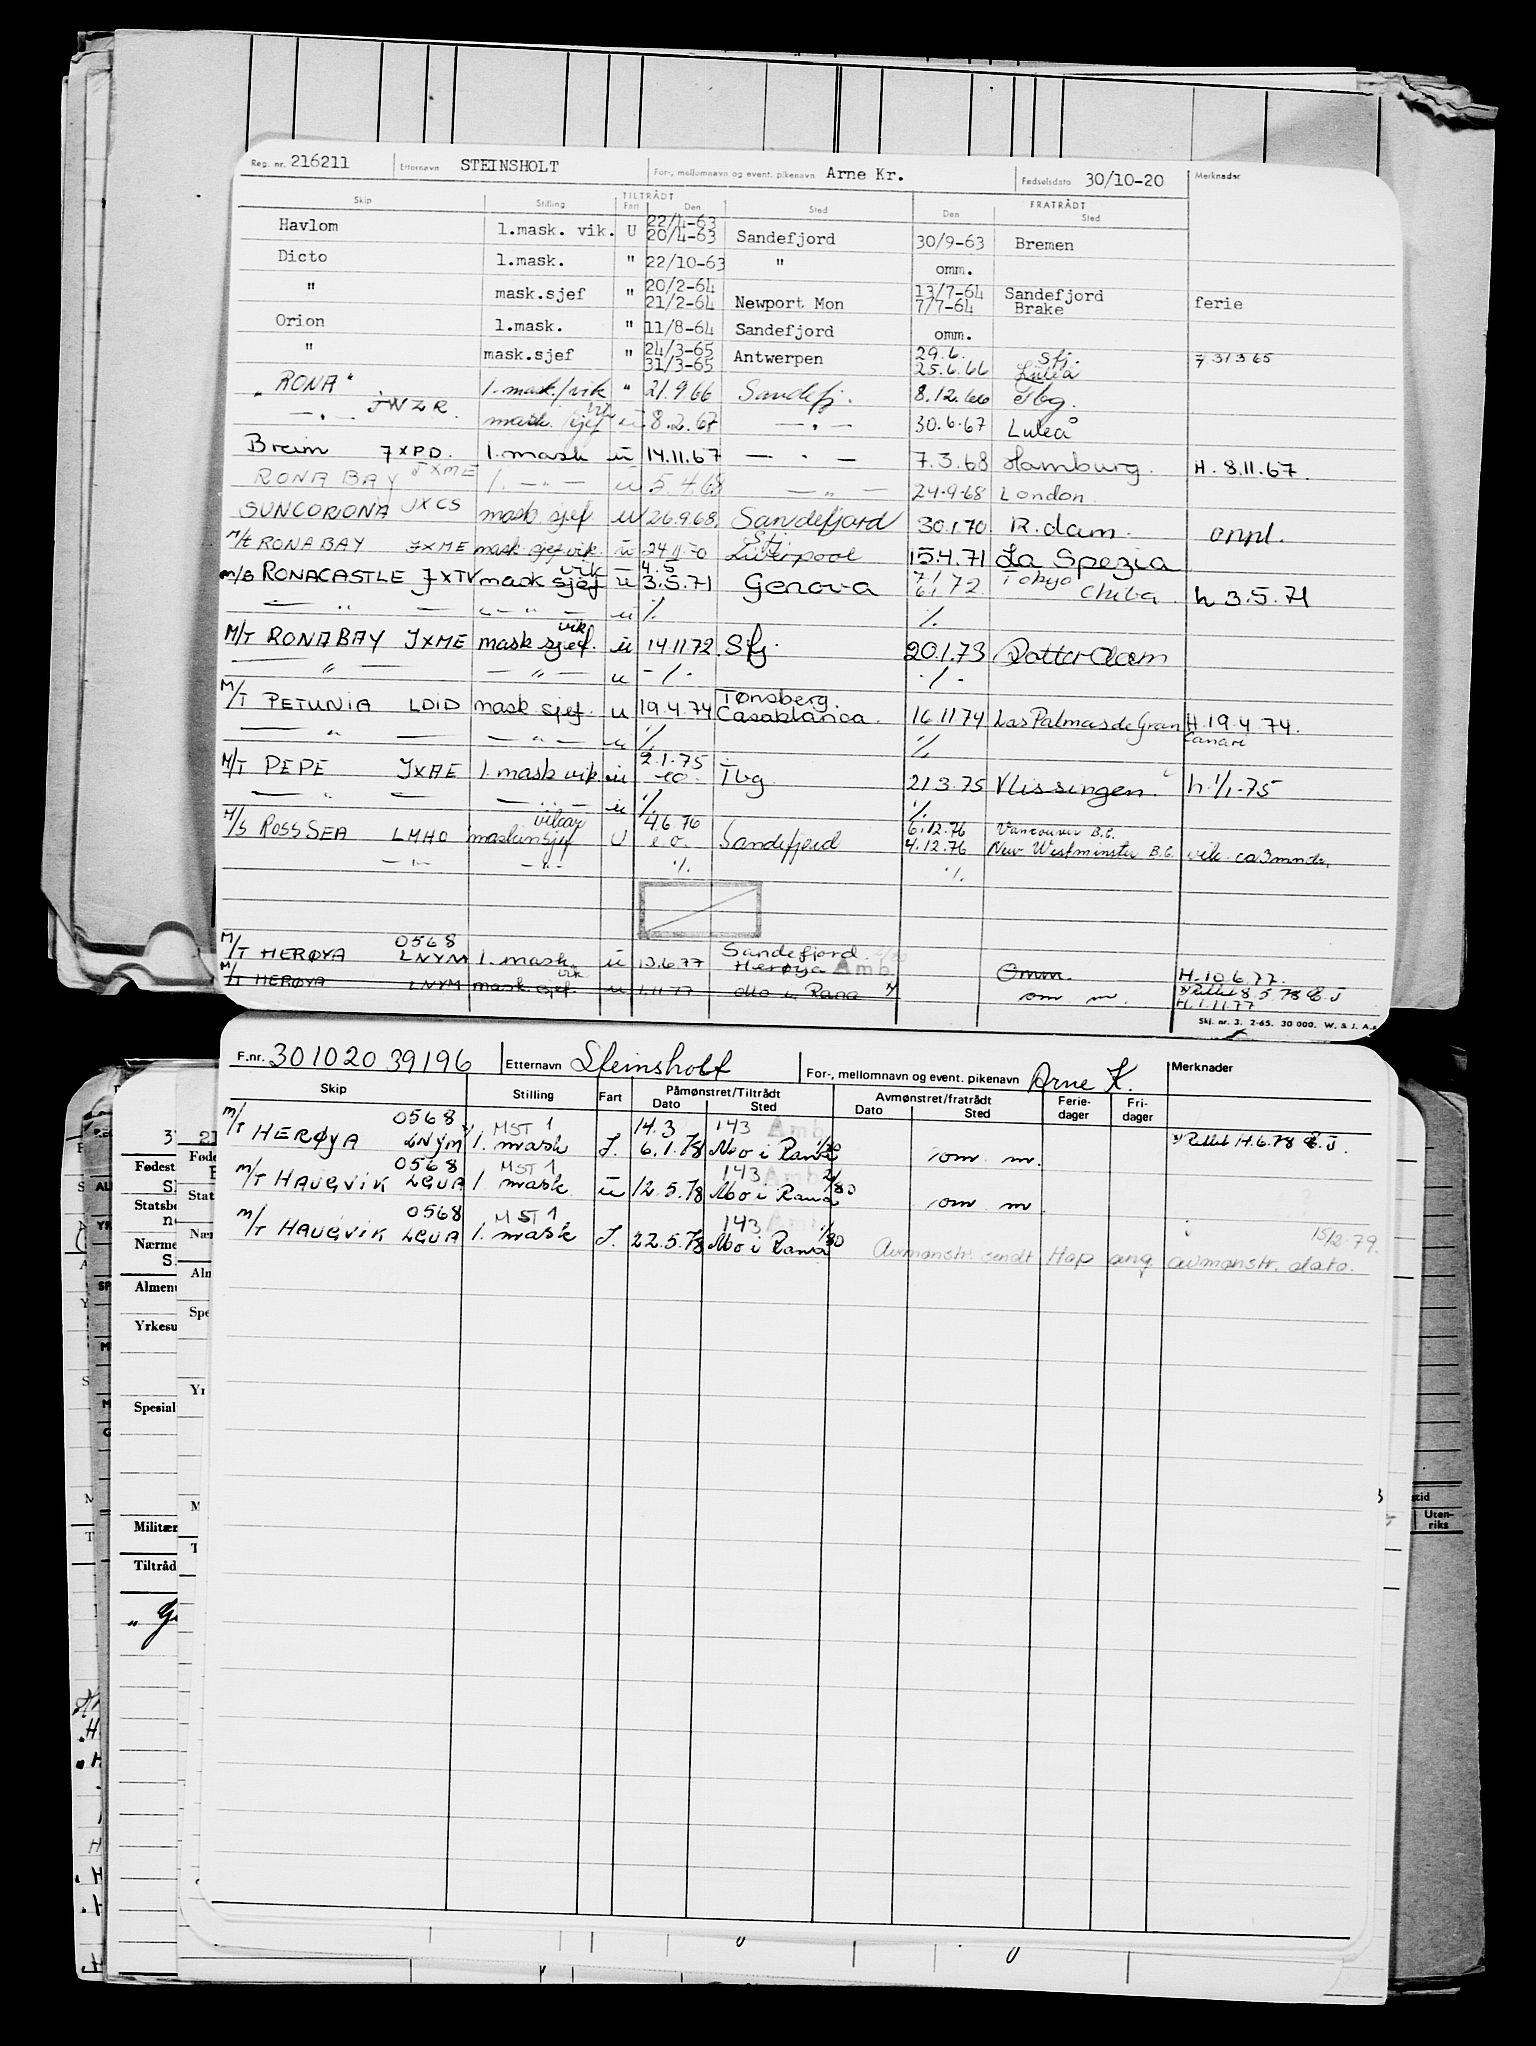 Reg. nr. 216211 Etternavn STEINSHOLT For-, mellomnavn og event. pikenavn Arne Kr. Fødselsdato 30/10-20 Merknader
TILTRÅDT FRATRÅDT
Skip Stilling Fart Den Sted Den Sted
22/4-63
Havlom 1.mask. vik. U 20/4-63 Sandefjord 30/9-63 Bremen
Dicto 1.mask. " 22/10-63 " omm.
20/2-64 13/7-64 Sandefjord
" mask.sjef " 21/2-64 Newport Mon 7/7-64 Brake ferie
Orion 1.mask. " 11/8-64 Sandefjord omm.
24/3-65 29.6. Sfj.
" mask.sjef " 31/3-65 Antwerpen 25.6.66 Luleå 7 31365
"RONA" 1.mask./vik " 21.9.66 Sandefj. 8.12.66 Tbg.
— " — JWZR. mask. sjef vik u 8.2.67 — " — 30.6.67 Luleå
Breim JXPD. 1.mask u 14.11.67 — " — 7.3.68 Hamburg. H. 8.11.67.
RONA BAY JXME 1. — " — u 5.4.68 — " — 24.9.68 London.
SUNCORONA JXCS mask sjef u 26.9.68 Sandefjord 30.1.70 R.dam. oppl.
Sfj.
M/t RONABAY JXME mask sjef vik. u 24.11.70 Liverpool 15.4.71 La Spezia
vik 4.5 7/1 Tokyo
M/S RONACASTLE JXTV mask sjef u 3.5.71 Genova 6/1 72 Chiba. h 3.5.71
— " — — " — u ·/. ·/.
vik
M/T RONABAY JXME mask sjef. u 14.11.72 Sfj. 20.1.73 Rotterdam
— " — — " — u ·/. ·/.
Tønsberg.
M/T PETUNIA LDID mask sjef. u 19.4.74 Casablanca. 16.11.74 Las Palmas de Gran Canari H.19.4.74.
— " — — " — u ·/. ·/.
2.1.75
M/T PEPE JXAE 1.mask vik. u eo. Tbg 21.3.75 Vlissingen. h.1/1-75
— " — — " — u ·/. ·/.
vikar 4.6.76 6.12.76 Vancouver B.C.
M/S ROSS SEA LMHO maskinsjef U e.o. Sandefjord 4.12.76 New Westminster B.C. vik. ca 3 mndr.
— " — — " — ·/. ·/.
0568 Sandefjord
M/T HERØYA LNYM 1. mask. u 13.6.77 Herøya Amb. Omm. H.10.6.77.
vik
M/T HERØYA LNYM mask.sjef u 1.11.77 Mo i Rana x) om m. x) Rettet 8.5.78 E.J
H.1.11.77
Skj. nr. 3. 2-65. 30 000. W. & J. A.s
F.nr. 301020 39196 Etternavn Steinsholt For-, mellomnavn og event. pikenavn Arne K. Merknader
Skip Stilling Fart Påmønstret/Tiltrådt Avmønstret/fratrådt Ferie-dager Fri-dager
Dato Sted Dato Sted
0568 MST 1 14.3 143 Amb
M/T HERØYA LNYM x) 1. mask J. 6.1.78 Mo i Rana 1/80 om m. x) Rettet 14.6.78 E.J.
0568 MST 1 143 Amb
M/T HAUGVIK LGUA 1. mask u 12.5.78 Mo i Rana 2/80 om m
0568 MST 1 143 Amb
M/T HAUGVIK LGUA 1. mask J. 22.5.78 Mo i Rana 1/80 15/2-79.
Avmønstr. sendt Hap ang avmønstr. dato.
Fødest
Statsbo
Nærme
Almenu
Yrkesu
Spesial
Militær
Tiltråd
Uten-
riks